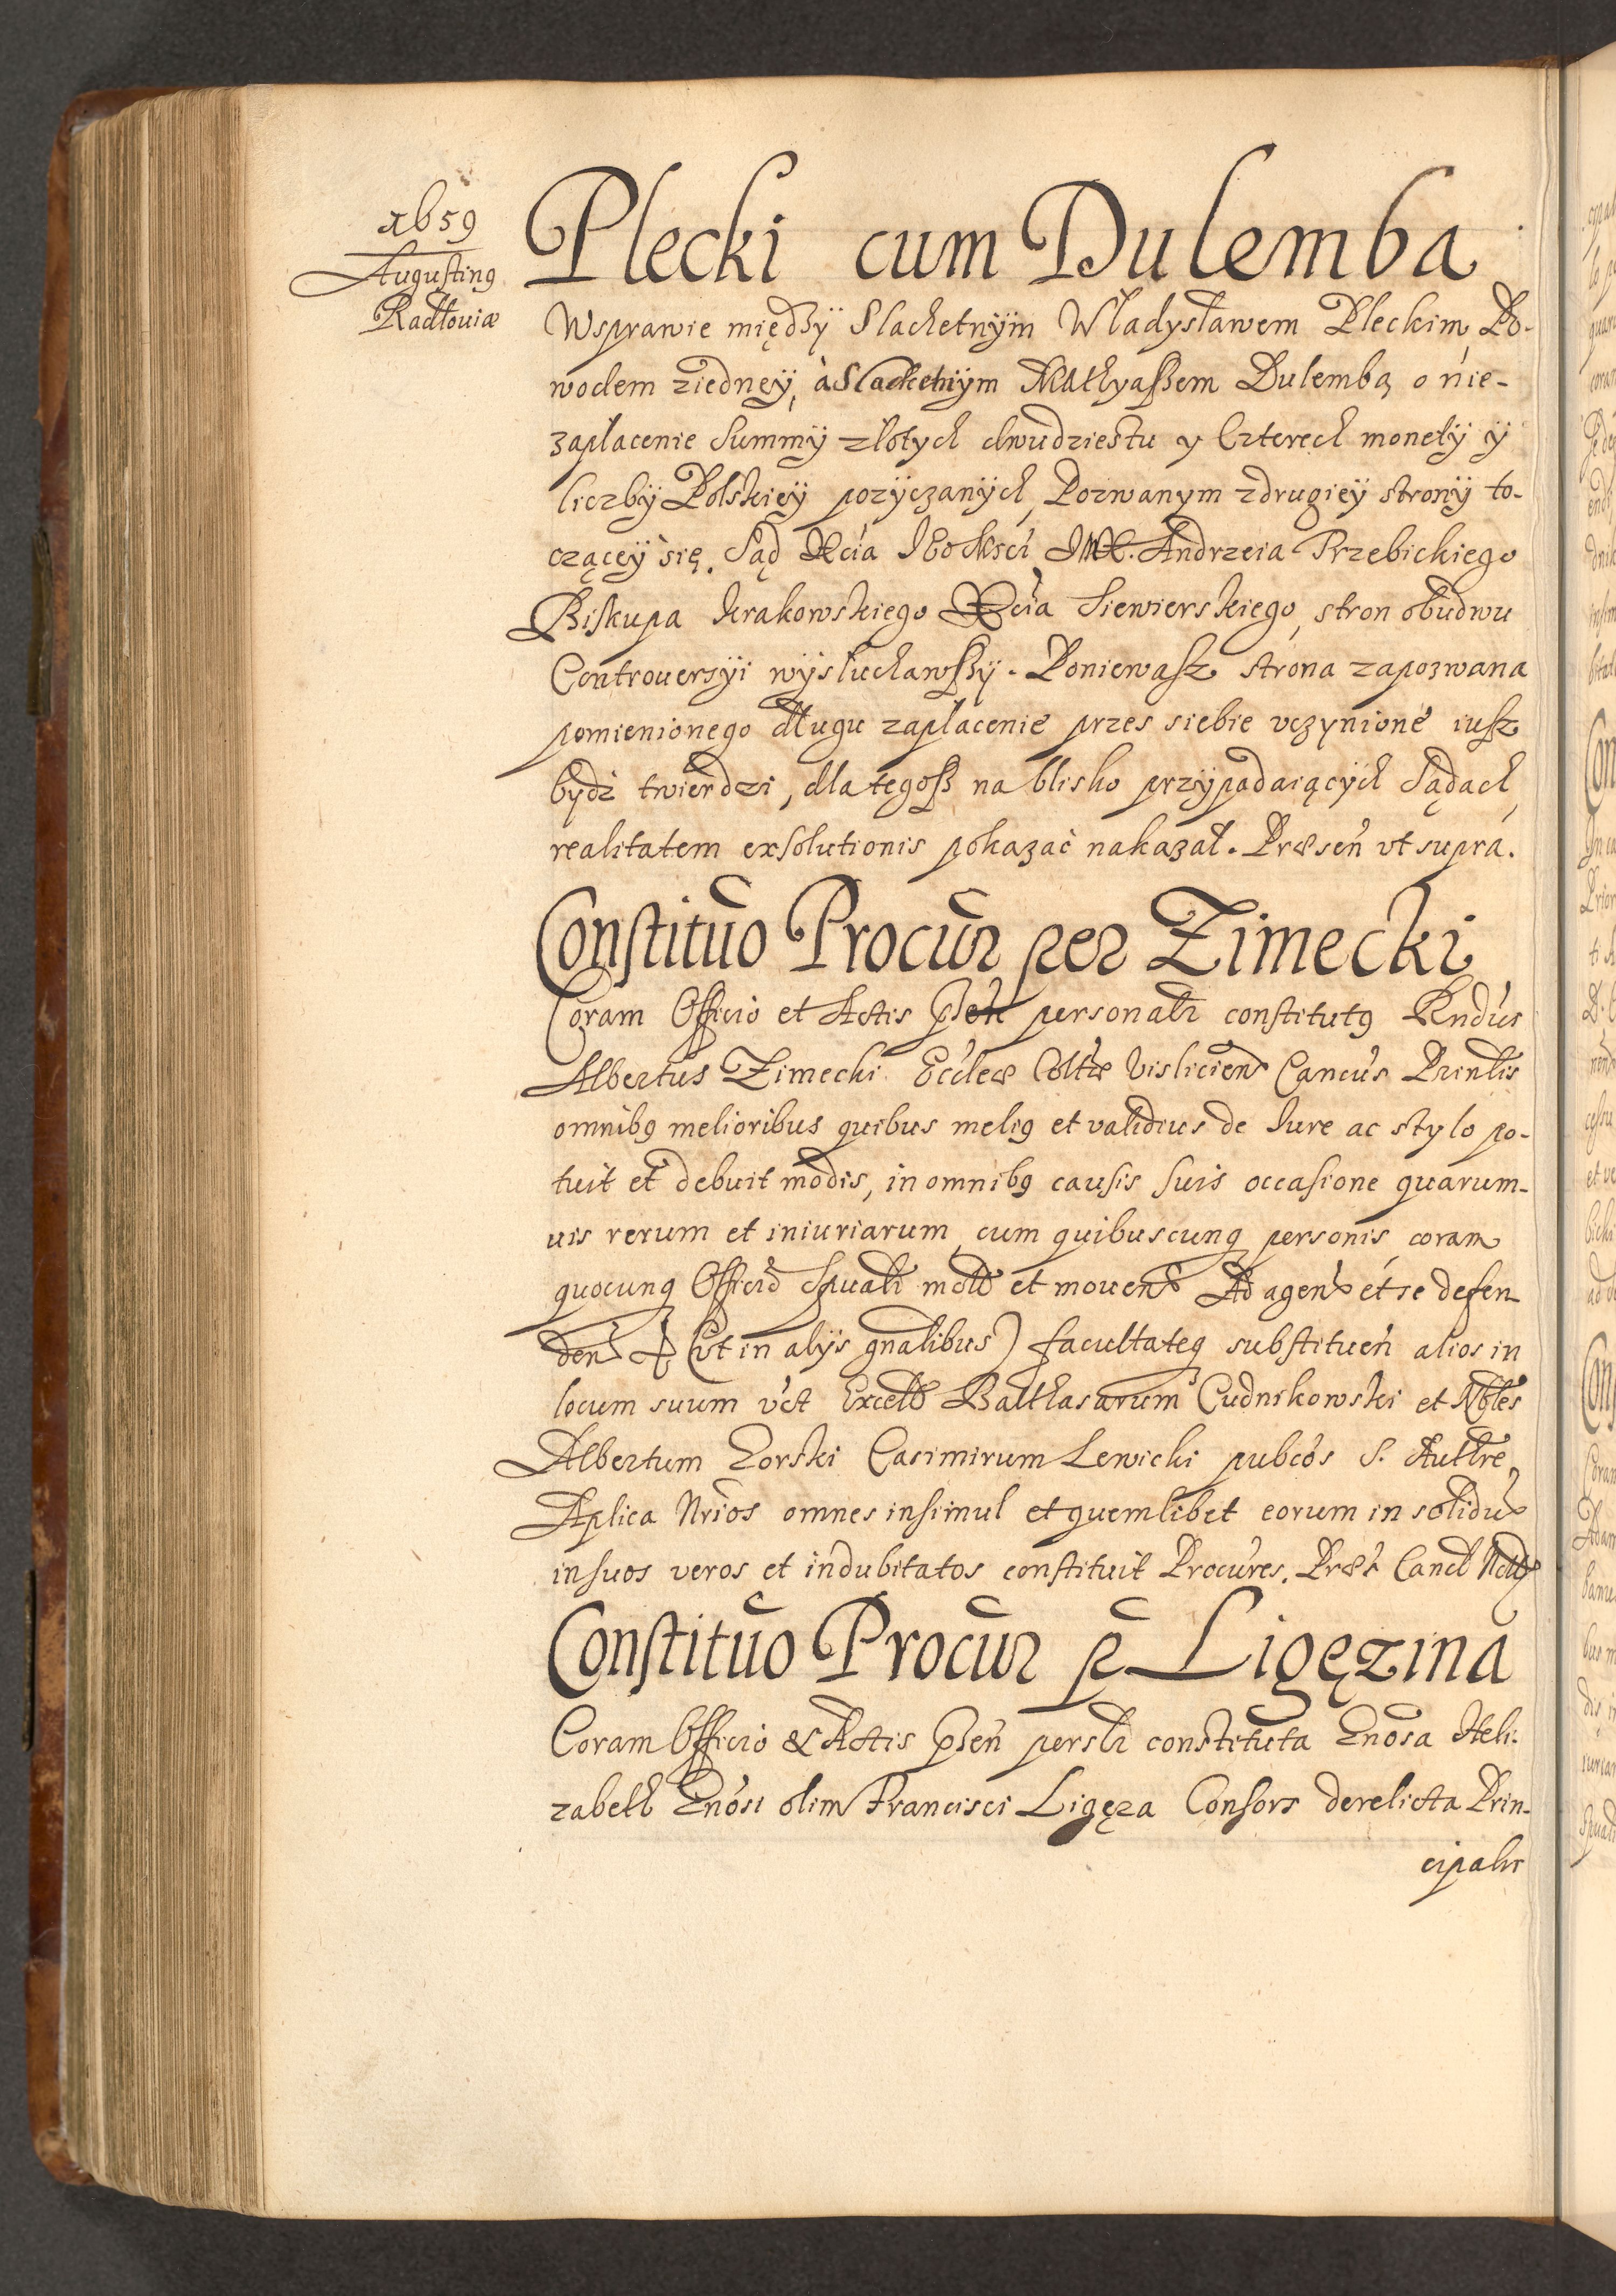 1659
Augustinꝯ
Radłoviæ
Plecki cum Dulemba
Wsprawie międzÿ Slachetnÿm Władysławem Pleckim, Po-
wodem ziednęÿ, à Slachetnÿm Mathyaszem Dulembą o nie-
zapłacenie Summÿ złotych dwudziestu y Czterech monetÿ ÿ
liczbÿ Polskieÿ pozÿczanÿch, Pozwanym zdrugieÿ stronÿ to-
cząceÿ się. Sąd Xcia Andrzeia Przebickiego
Biskupa krakowskiego Xcia Siewierskiego, stron obudwu
Controuersÿi wÿsłuchawszÿ. Poniewasz strona zapozwana
pomienionego długu zapłacenie przes siebie vczynione iusz
bydź twierdzi, dla tegosz na blisko przÿpadaiącÿch Sądach,
realitatem exsolutionis pokazać nakazał. Præseń vt supra.
Constituo Procur per Zimecki
Coram Officio et Actis pseń personalr constitutꝯ Rndus
Albertus Zimecki Eccleæ Coltæ Vislicien Cancus Prinlis
omnibꝯ melioribus quibus meliꝯ et validius de Iure ac stylo po-
tuit et debuit modis, in omnibꝯ causis suis occasione quarum-
uis rerum et iniuriarum cum quibuscunq personis, coram
quocunq Officio Spuali motis et mouen Ad agen et se defen-
den & (vt in alÿs gnalibus) facultateq substitueń alios in
locum suum vct Excell Balthasarum Cudnikowski et Nbles
Albertum Zorski Casimirum Lewicki pubcos S. Authre
Aplica Nrios omnes insimul et quemlibet eorum in solidu
in suos veros et indubitatos constituit Procures. Præt Canel
Constituo Procur p Ligęzina
Coram Officio & Actis pseń persłr constituta Gnosa Heli-
zabeth Gnosi olim Francisci Ligęza Consors derelicta Prin-
cipalis